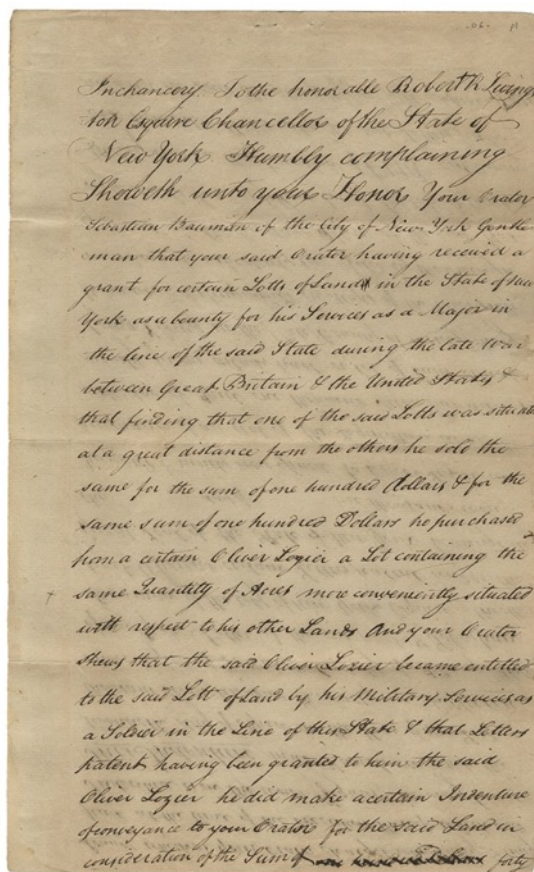 In chancery To the honorable Robert R Living
ton Esquire Chancellor of the State of
New York Humbly complaining
Sheweth unto your Honor Your Orator
Sebastian Bauman of the City of New York Gentle
man that your said Orator having received a
grant for certain Lotts of Land in the State of New
York as a bounty for his Services as a Major in
the line of the said State during the late War
between Great Britain & the United States &
that finding that one of the said Lotts was situate
at a great distance from the others he sold the
same for the sum of one hundred Dollars & for the
same sum of one hundred Dollars he purchased
from a certain Oliver Lozier a Lot containing the
same Quantity of Acres more conveniently situated
with respect to his other Lands And your Orator
shews that the said Oliver Lozier became entitled
to the said Lott of Land by his Military Services as
a Soldier in the Line of this State & that Letters
patent having been granted to him the said
Oliver Lozier he did make a certain Indenture
of conveyance to your Orator for the said Land in
consideration of the Sum of one hundred Dollars forty